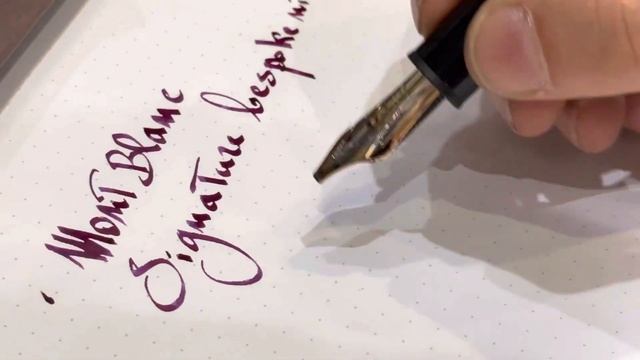 Mont Blanc
Signature bespoke ni